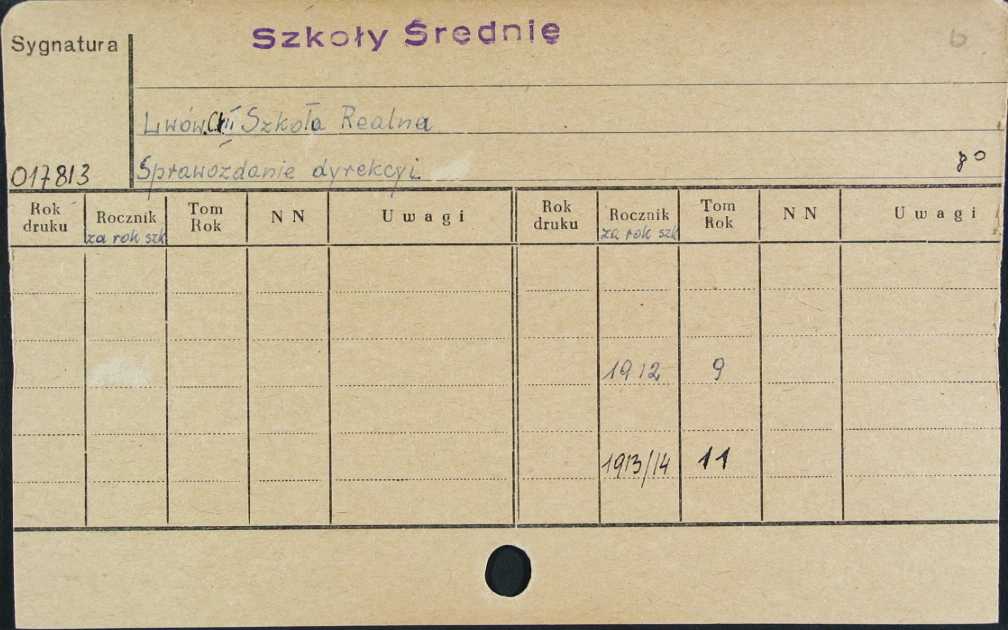 Szkoły Średnie
Sygnatura
b
Lwów. II Szkoła Realna
017813
Sprawozdanie dyrekcyi.
80
Rok druku Rocznik za rok szk Tom Rok N N U w a g i Rok druku Rocznik za rok szk Tom Rok N N U w a g i
1912 9
1913/14 11